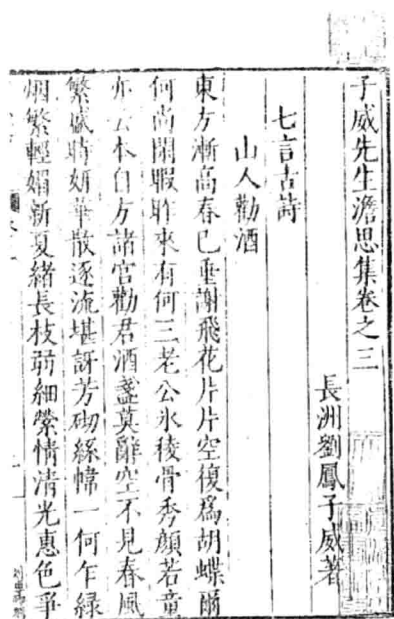 子威先生澹思集卷之三
長洲劉鳳子威著
七言古詩
山人勸酒
東方漸高春已垂謝飛花片片空復爲胡蝶爾
何尚閑暇昨來有何三老公氷稜骨秀顔若童
亦云本自方諸宮勸君酒盞莫辭空不見春風
繁盛時妍華散逐流堪訝芳砌絲幃一何乍緑
烟繁輕媚新夏緒長枝弱細縈情清光惠色爭